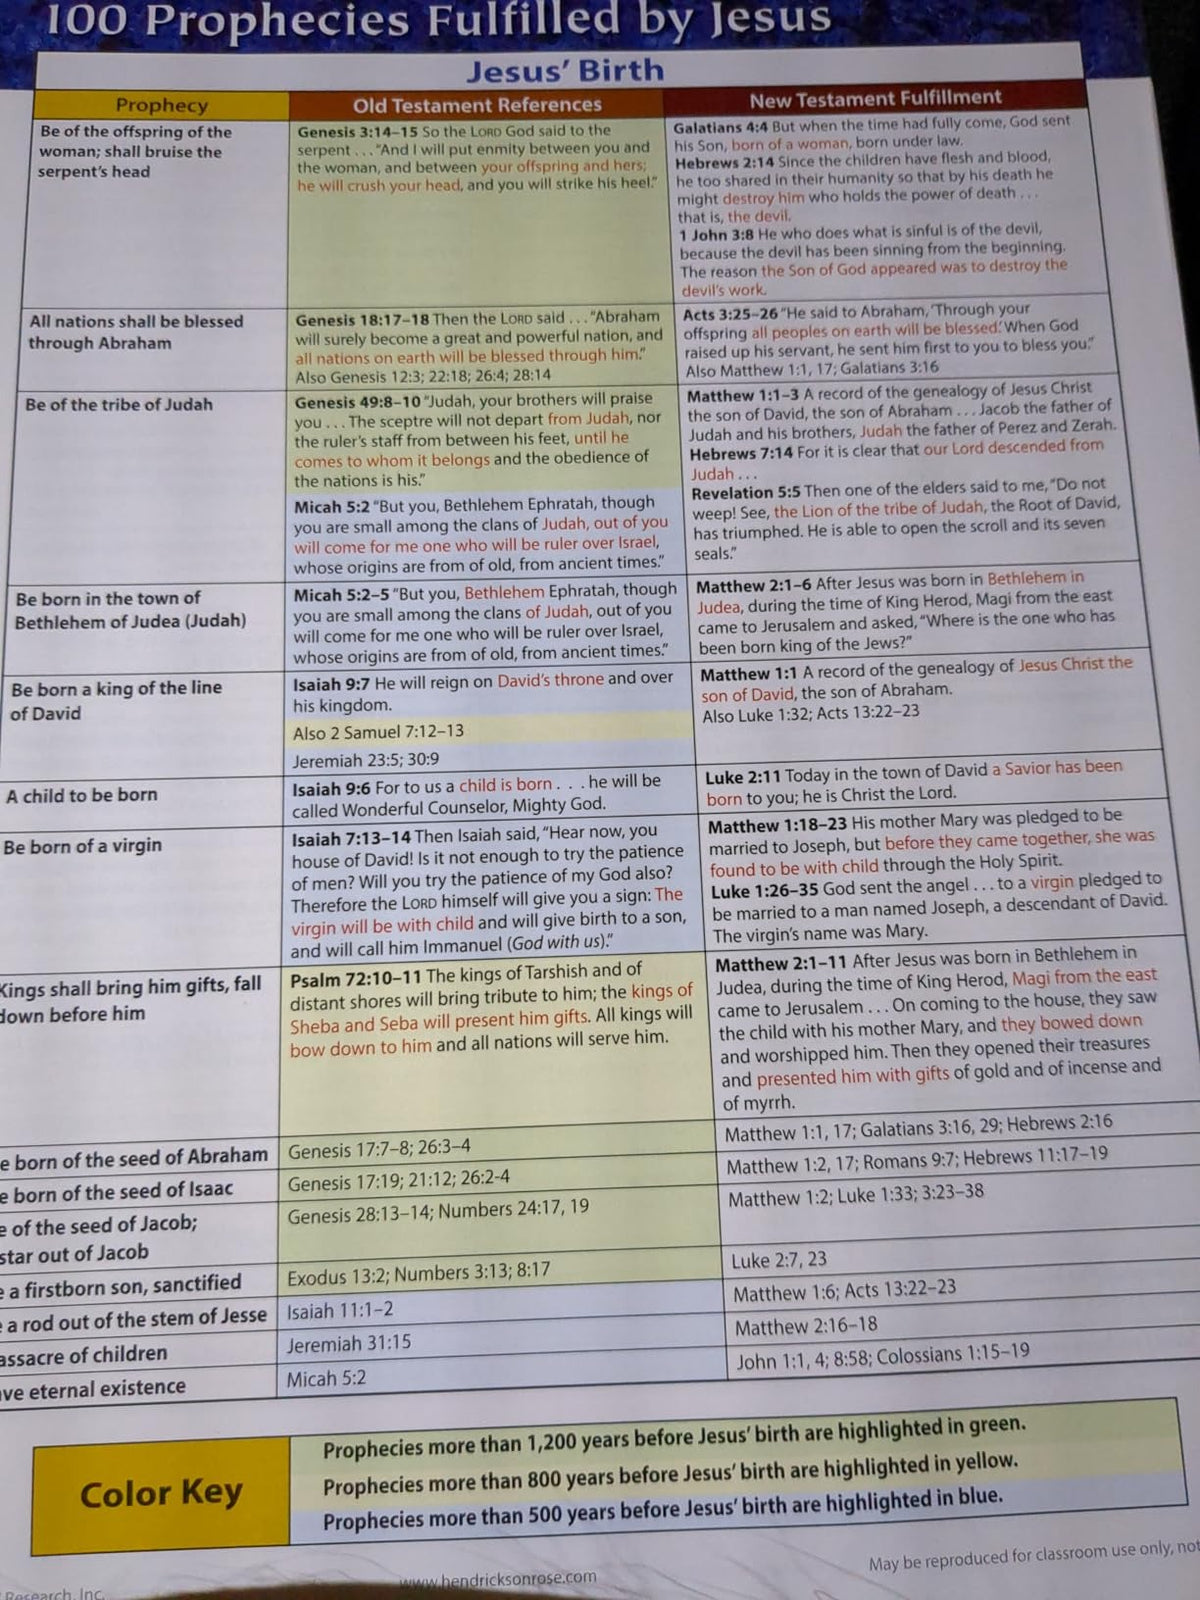 100 Prophecies Fulfilled by Jesus
Jesus' Birth
Prophecy
Old Testament References
New Testament Fulfillment
Be of the offspring of the
woman; shall bruise the
serpent's head
Genesis 3:14–15 So the LORD God said to the
serpent . . . "And I will put enmity between you and
the woman, and between your offspring and hers;
he will crush your head, and you will strike his heel."
Galatians 4:4 But when the time had fully come, God sent
his Son, born of a woman, born under law.
Hebrews 2:14 Since the children have flesh and blood,
he too shared in their humanity so that by his death he
might destroy him who holds the power of death . . .
that is, the devil.
1 John 3:8 He who does what is sinful is of the devil,
because the devil has been sinning from the beginning.
The reason the Son of God appeared was to destroy the
devil's work.
All nations shall be blessed
through Abraham
Genesis 18:17–18 Then the LORD said . . . "Abraham
will surely become a great and powerful nation, and
all nations on earth will be blessed through him."
Also Genesis 12:3; 22:18; 26:4; 28:14
Acts 3:25–26 "He said to Abraham, 'Through your
offspring all peoples on earth will be blessed.' When God
raised up his servant, he sent him first to you to bless you."
Also Matthew 1:1, 17; Galatians 3:16
Be of the tribe of Judah
Genesis 49:8–10 "Judah, your brothers will praise
you . . . The sceptre will not depart from Judah, nor
the ruler's staff from between his feet, until he
comes to whom it belongs and the obedience of
the nations is his."
Micah 5:2 "But you, Bethlehem Ephratah, though
you are small among the clans of Judah, out of you
will come for me one who will be ruler over Israel,
whose origins are from of old, from ancient times."
Matthew 1:1–3 A record of the genealogy of Jesus Christ
the son of David, the son of Abraham . . . Jacob the father of
Judah and his brothers, Judah the father of Perez and Zerah.
Hebrews 7:14 For it is clear that our Lord descended from
Judah . . .
Revelation 5:5 Then one of the elders said to me, "Do not
weep! See, the Lion of the tribe of Judah, the Root of David,
has triumphed. He is able to open the scroll and its seven
seals."
Be born in the town of
Bethlehem of Judea (Judah)
Micah 5:2–5 "But you, Bethlehem Ephratah, though
you are small among the clans of Judah, out of you
will come for me one who will be ruler over Israel,
whose origins are from of old, from ancient times."
Matthew 2:1–6 After Jesus was born in Bethlehem in
Judea, during the time of King Herod, Magi from the east
came to Jerusalem and asked, "Where is the one who has
been born king of the Jews?"
Be born a king of the line
of David
Isaiah 9:7 He will reign on David's throne and over
his kingdom.
Also 2 Samuel 7:12–13
Jeremiah 23:5; 30:9
Matthew 1:1 A record of the genealogy of Jesus Christ the
son of David, the son of Abraham.
Also Luke 1:32; Acts 13:22–23
A child to be born
Isaiah 9:6 For to us a child is born . . . he will be
called Wonderful Counselor, Mighty God.
Luke 2:11 Today in the town of David a Savior has been
born to you; he is Christ the Lord.
Be born of a virgin
Isaiah 7:13–14 Then Isaiah said, "Hear now, you
house of David! Is it not enough to try the patience
of men? Will you try the patience of my God also?
Therefore the LORD himself will give you a sign: The
virgin will be with child and will give birth to a son,
and will call him Immanuel (God with us)."
Matthew 1:18–23 His mother Mary was pledged to be
married to Joseph, but before they came together, she was
found to be with child through the Holy Spirit.
Luke 1:26–35 God sent the angel . . . to a virgin pledged to
be married to a man named Joseph, a descendant of David.
The virgin's name was Mary.
Kings shall bring him gifts, fall
down before him
Psalm 72:10–11 The kings of Tarshish and of
distant shores will bring tribute to him; the kings of
Sheba and Seba will present him gifts. All kings will
bow down to him and all nations will serve him.
Matthew 2:1–11 After Jesus was born in Bethlehem in
Judea, during the time of King Herod, Magi from the east
came to Jerusalem . . . On coming to the house, they saw
the child with his mother Mary, and they bowed down
and worshipped him. Then they opened their treasures
and presented him with gifts of gold and of incense and
of myrrh.
e born of the seed of Abraham
Genesis 17:7–8; 26:3–4
Matthew 1:1, 17; Galatians 3:16, 29; Hebrews 2:16
e born of the seed of Isaac
Genesis 17:19; 21:12; 26:2-4
Matthew 1:2, 17; Romans 9:7; Hebrews 11:17–19
e of the seed of Jacob;
star out of Jacob
Genesis 28:13–14; Numbers 24:17, 19
Matthew 1:2; Luke 1:33; 3:23–38
e a firstborn son, sanctified
Exodus 13:2; Numbers 3:13; 8:17
Luke 2:7, 23
a rod out of the stem of Jesse
Isaiah 11:1–2
Matthew 1:6; Acts 13:22–23
assacre of children
Jeremiah 31:15
Matthew 2:16–18
ve eternal existence
Micah 5:2
John 1:1, 4; 8:58; Colossians 1:15–19
Color Key
Prophecies more than 1,200 years before Jesus' birth are highlighted in green.
Prophecies more than 800 years before Jesus' birth are highlighted in yellow.
Prophecies more than 500 years before Jesus' birth are highlighted in blue.
Research, Inc.
www.hendricksonrose.com
May be reproduced for classroom use only, not